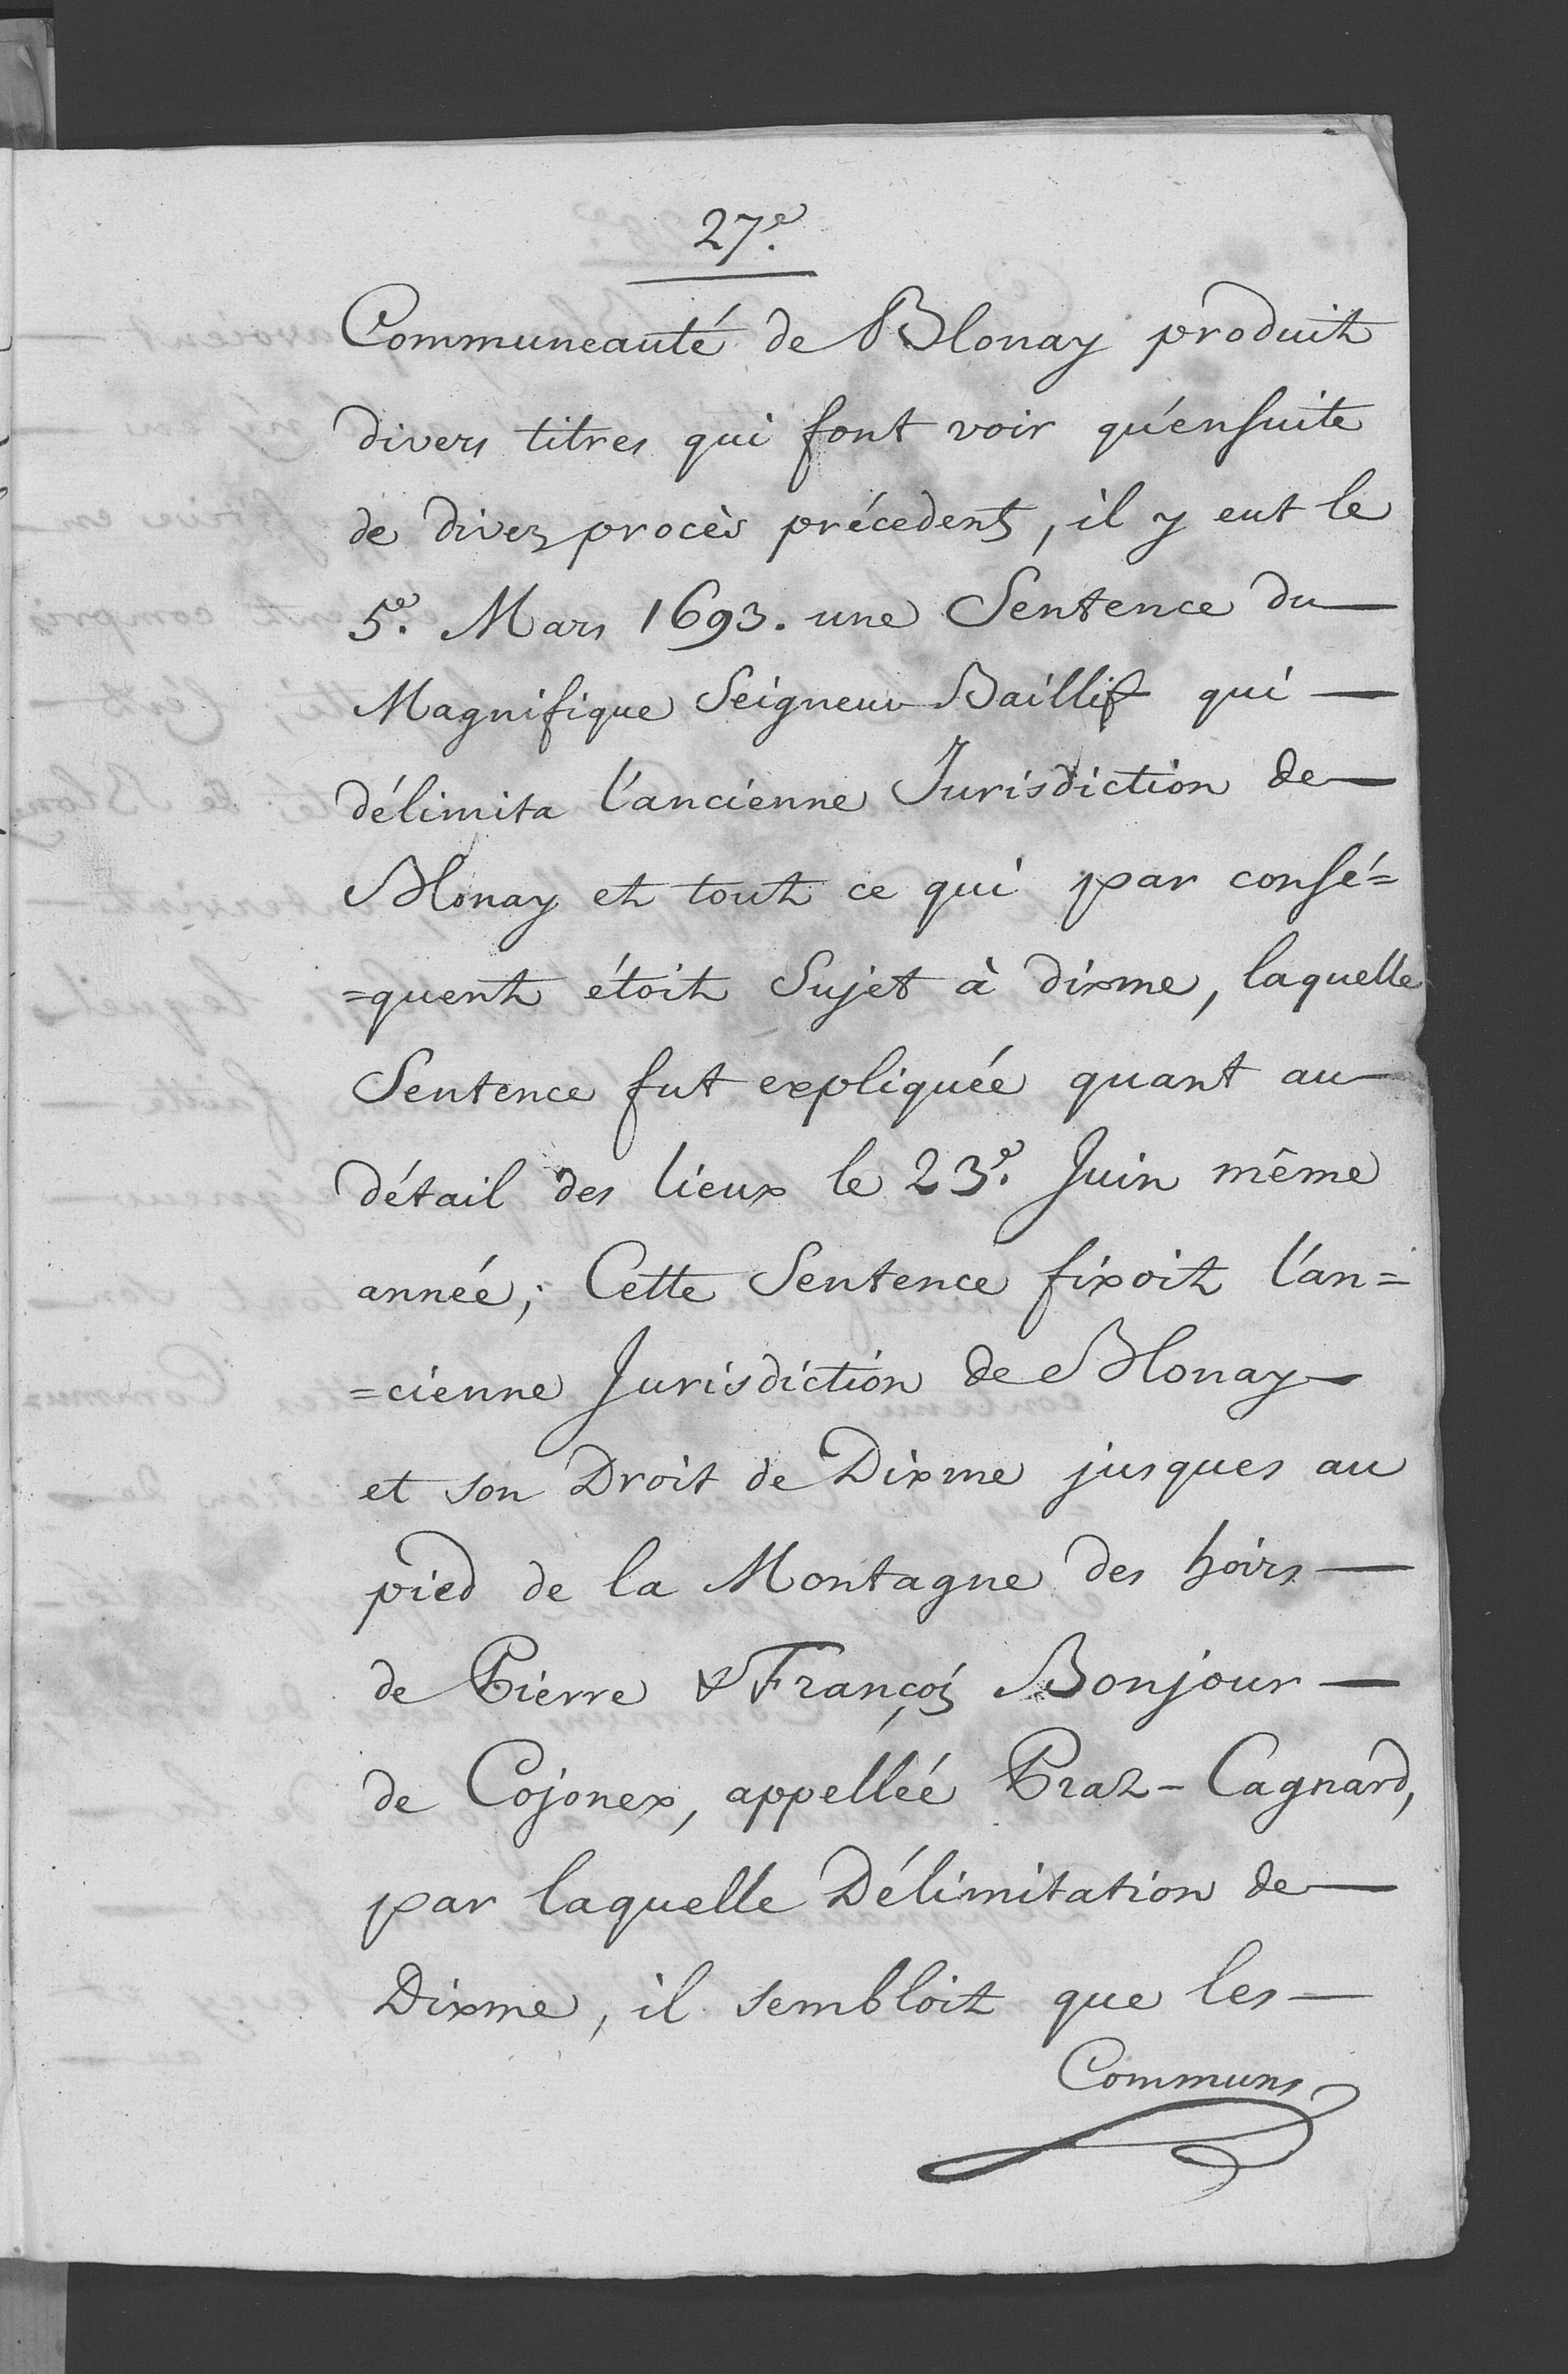 27.e
Communeauté de Blonay produit
divers titres qui font voir qu'ensuite
de divers procès précedents, il y eut le
5.e Mars 1693. une Sentence du —
Magnifique Seigneur Baillif qui —
délimita l'ancienne Jurisdiction de —
Blonay et tout ce qui par consé=
=quent étoit Sujet à dixme, laquelle
Sentence fut expliquée quant au
détail des lieux le 23.e Juin même
année; Cette Sentence fixoit l'an=
=cienne Jurisdiction de Blonay
et son Droit de Dixme jusques au
pied de la Montagne des hoirs —
de Pierre & François Bonjour —
de Cojonex, appellée Praz-Cagnard,
par laquelle Délimitation de —
Dixme, il sembloit que les —
Communs